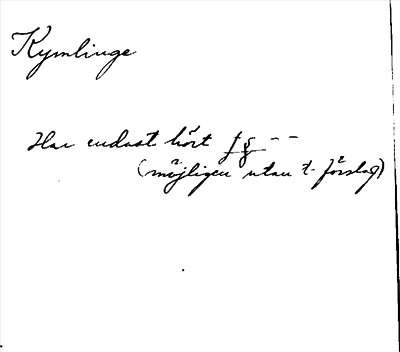 Kymlinge
Har endast hört
(möjligen utan t-förslag)